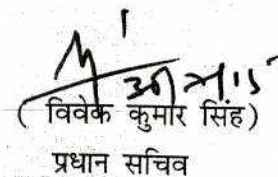 ( विवेक कुमार सिंह)
प्रधान सचिव